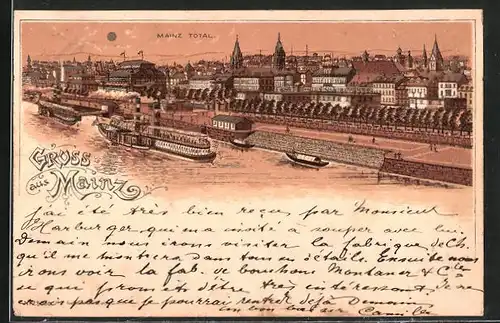 MAINZ TOTAL.
Gruss
aus Mainz
J'ai été très bien reçu par Monsieur
Harburger, qui m'a invité à souper avec lui.
Demain nous irons visiter la fabrique de Ch.
qu'il me montrera dans tous ses détails. Ensuite nous
irons voir la fab. de bouchons Montaner & Cie
ce qui promet d'être très intéressant. Je ne
pas que je pourrai rentrer déjà Demain
un bon baiser Camille